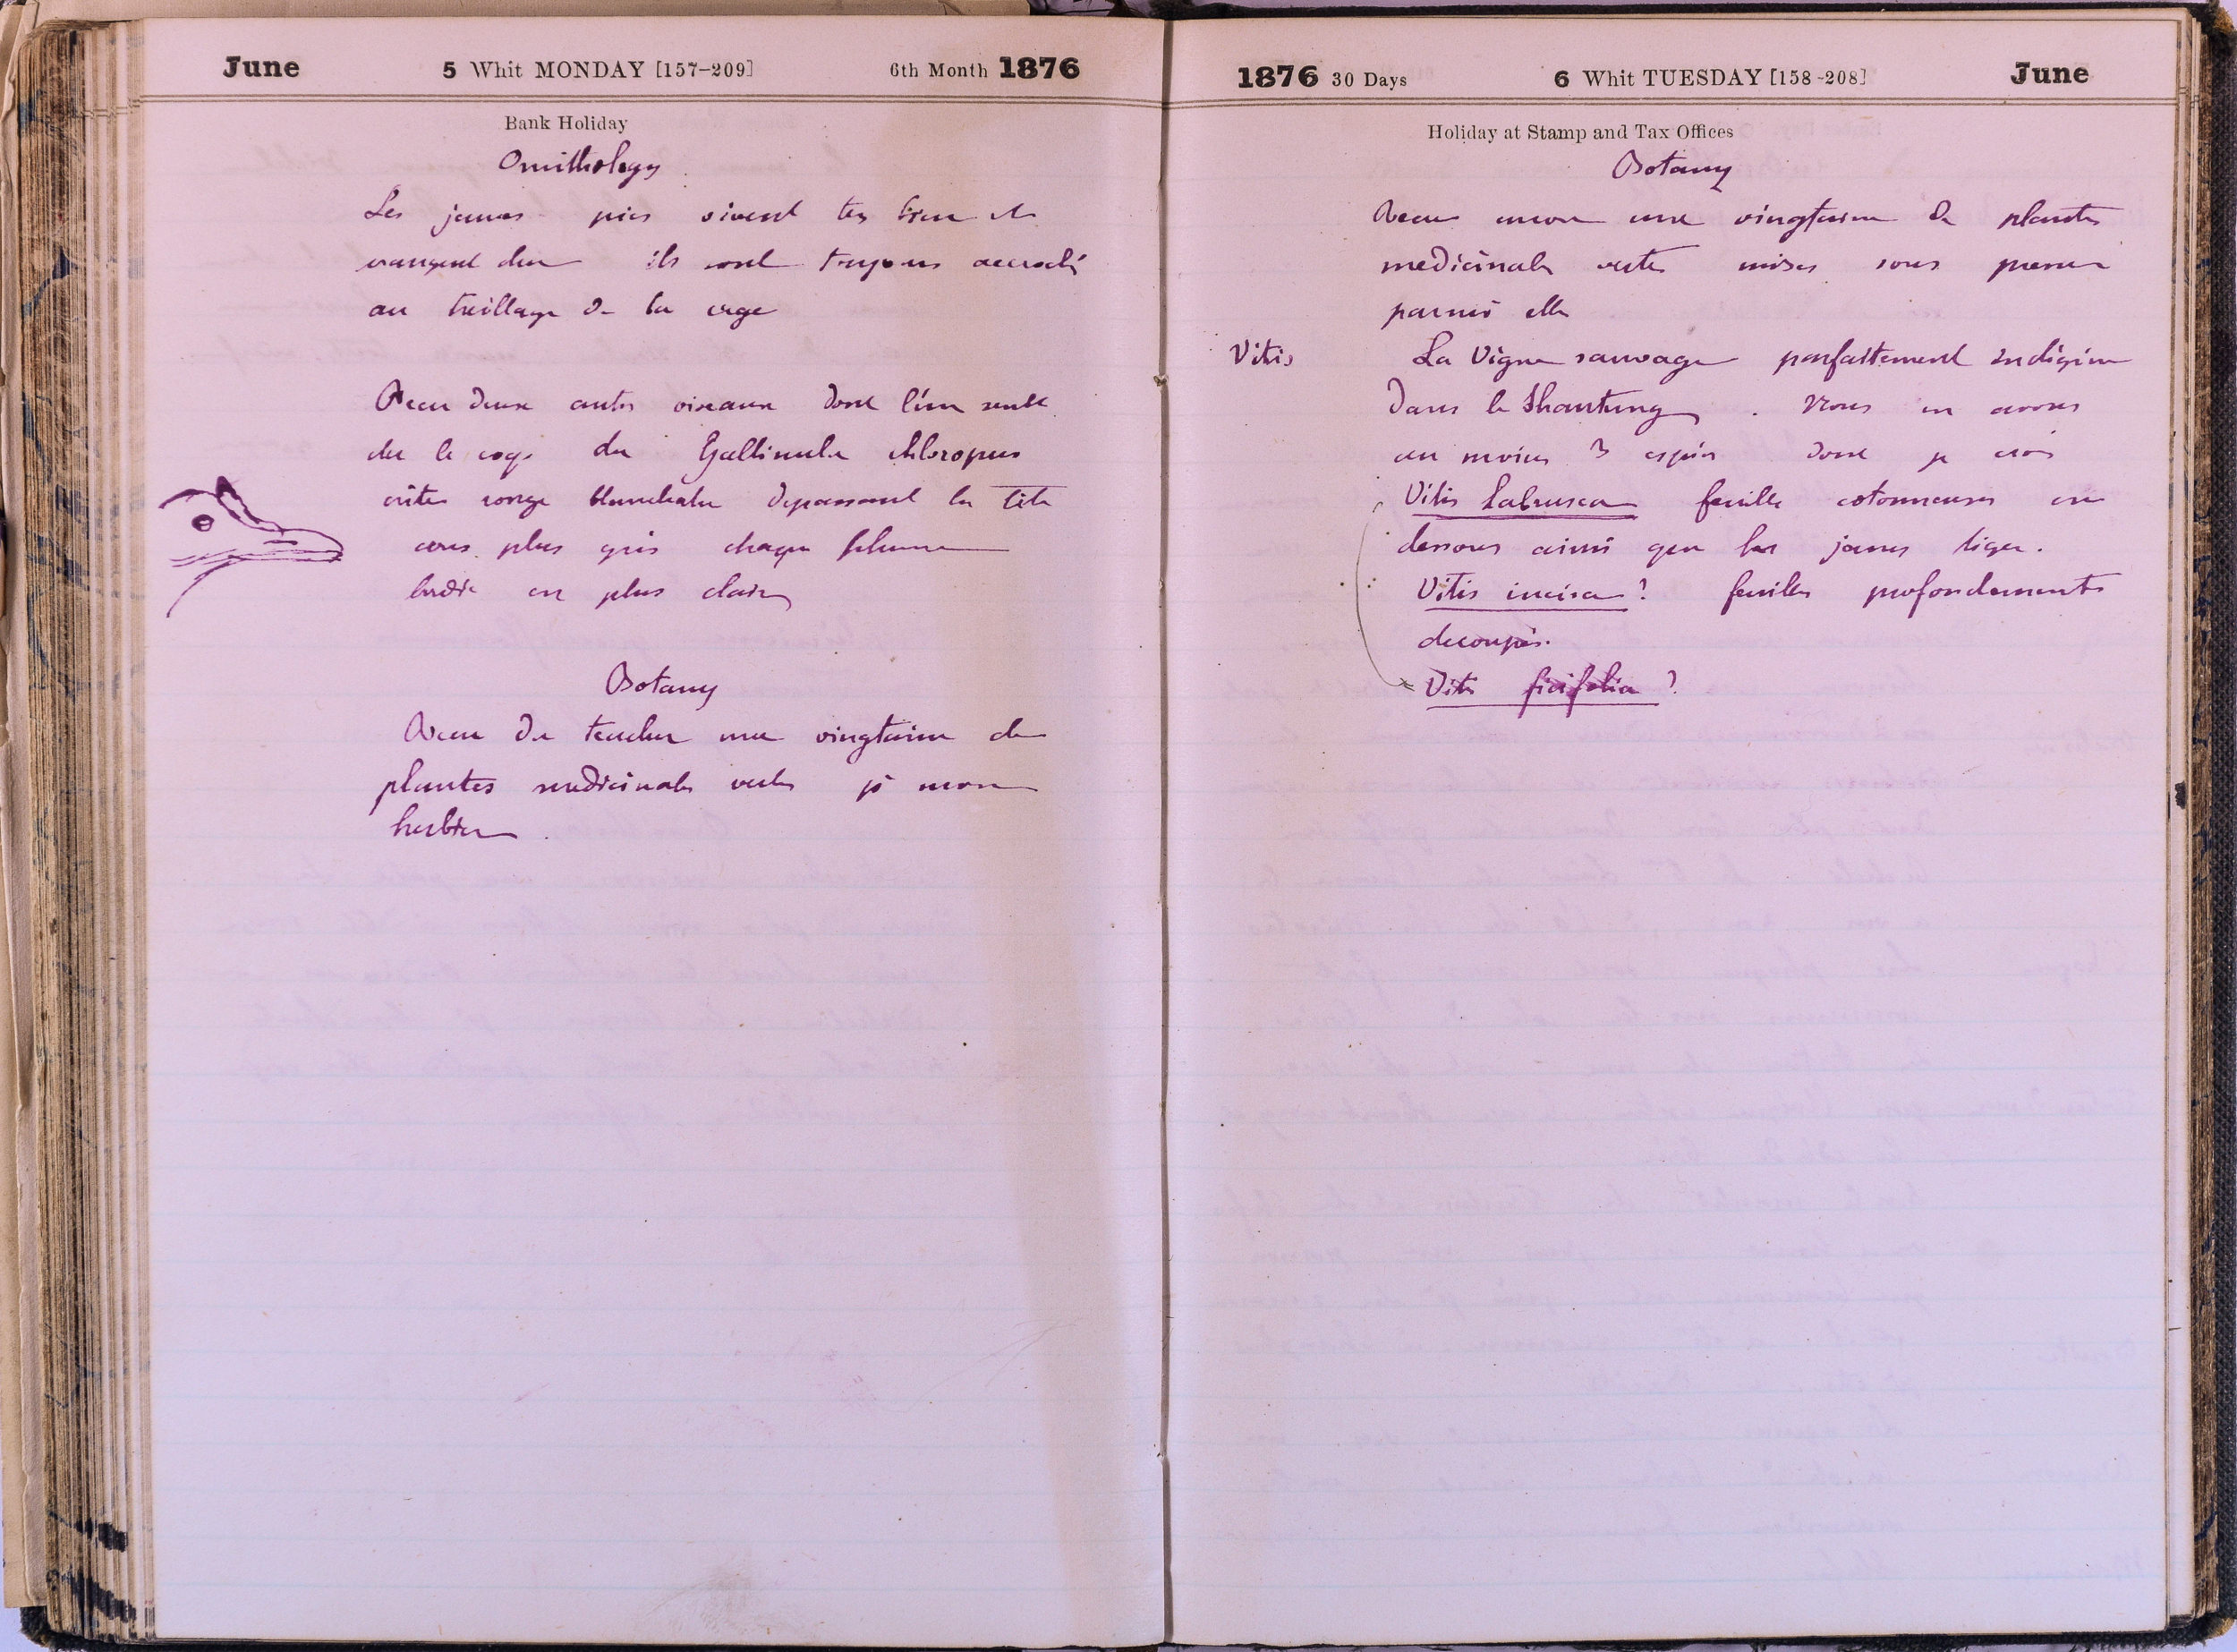 June 5 Whit MONDAY [157-209] 6th Month 1876
Bank Holiday
Ornithology
Les jeunes pies vivent tres bien et
mangent ils sont toujours accroché
au treillage de la cage
Recu deux autres oiseaux dont l'un semble
etre le coq du Gallinula chloropus
crête rouge blanchatre depassant la tête
cous plus gris chaque plume
bordée en plus clair
Botany
Recu de une vingtaine de
plantes medicinales vertes pr mon
herbier
1876 30 Days 6 Whit TUESDAY [158-208] June
Holiday at Stamp and Tax Offices
Botany
Recu encore une vingtaine de plantes
medicinales vertes mises sous presse
parmi elles
Vitis La Vigne sauvage parfaitement indigène
dans le Shantung. Nous en avons
au moins 3 espèces dont je crois
Vitis Labrusca feuilles cotonneuses en
dessous ainsi que les jeunes tiges.
Vitis incisa? feuilles profondements
decoupés.
Vitis ficifolia?